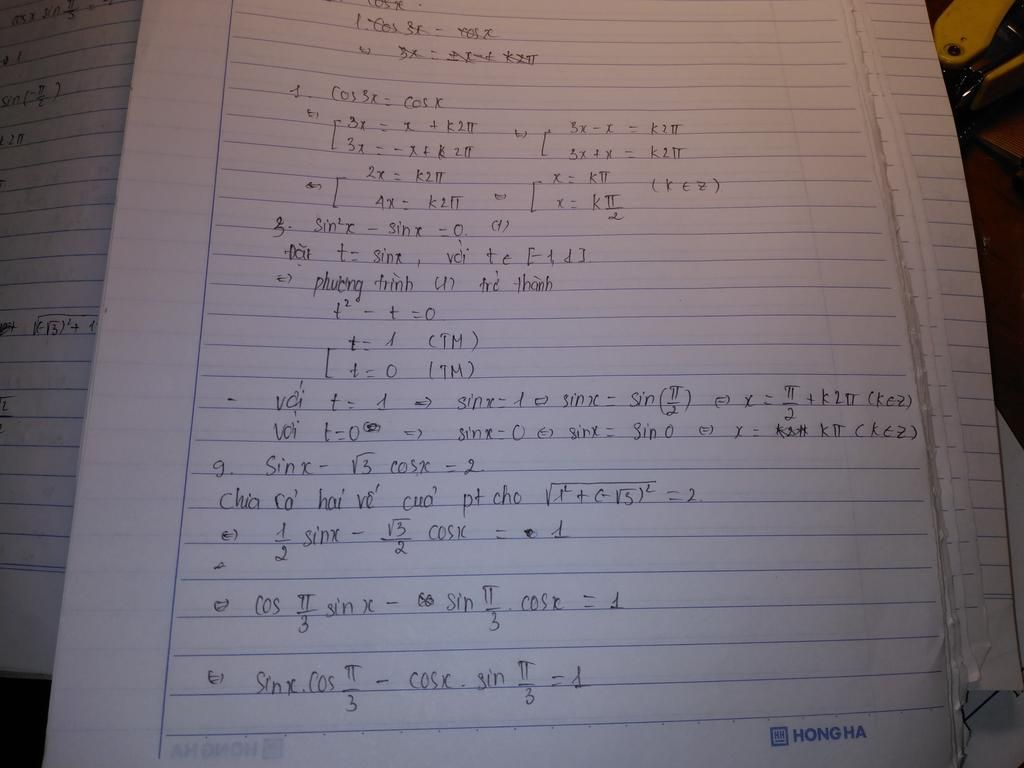 cosx.
1. cos3x = cosx
⇔ 3x = x + k2π
cosx sin π/3 =
sin(-π/2)
k2π
√(-√3)² + 1
1. cos3x = cosx
⇔ [ 3x = x + k2π ⇔ [ 3x - x = k2π
3x = -x + k2π 3x + x = k2π
⇔ [ 2x = k2π ⇔ [ x = kπ (k ∈ Z)
4x = k2π x = k π/2
3. sin²x - sinx = 0. (1)
Đặt t = sinx, với t ∈ [-1,1]
⇔ phương trình (1) trở thành
t² - t = 0
[ t = 1 (TM)
t = 0 (TM)
- với t = 1 ⇒ sinx = 1 ⇔ sinx = sin(π/2) ⇔ x = π/2 + k2π (k∈Z)
với t = 0 ⇒ sinx = 0 ⇔ sinx = sin0 ⇔ x = kπ (k∈Z)
9. Sinx - √3 cosx = 2.
Chia cả hai vế của pt cho √1² + (-√3)² = 2.
⇔ 1/2 sinx - √3/2 cosx = 1
⇔ cos π/3 sinx - sin π/3 . cosx = 1
⇔ Sinx.cos π/3 - cosx. sin π/3 = 1
HH HONG HA
HONG HA